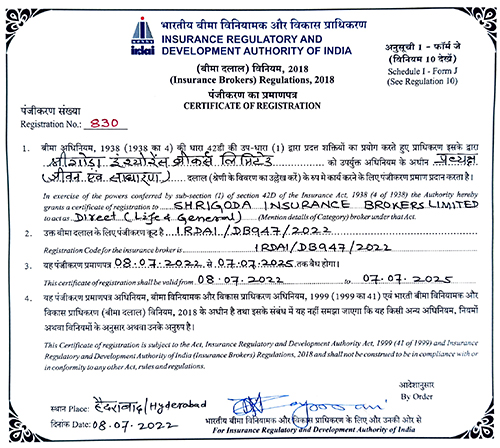 भारतीय बीमा विनियामक और विकास प्राधिकरण
INSURANCE REGULATORY AND
DEVELOPMENT AUTHORITY OF INDIA
irdai
(बीमा दलाल) विनियम, 2018
(Insurance Brokers) Regulations, 2018
अनुसूची I - फॉर्म जे
(विनियम 10 देखें)
Schedule I - Form J
(See Regulation 10)
पंजीकरण का प्रमाणपत्र
CERTIFICATE OF REGISTRATION
पंजीकरण संख्या
Registration No.: 830
1. बीमा अधिनियम, 1938 (1938 का 4) की धारा 42डी की उप-धारा (1) द्वारा प्रदत्त शक्तियों का प्रयोग करते हुए प्राधिकरण इसके द्वारा
श्रीगोडा इंश्योरेंस ब्रोकर्स लिमिटेड को उपर्युक्त अधिनियम के अधीन प्रत्यक्ष
(जीवन एवं साधारण) दलाल (श्रेणी के विवरण का उल्लेख करें) के रूप में कार्य करने के लिए पंजीकरण प्रमाण प्रदान करता है।
In exercise of the powers conferred by sub-section (1) of section 42D of the Insurance Act, 1938 (4 of 1938) the Authority hereby
grants a certificate of registration to SHRIGODA INSURANCE BROKERS LIMITED
to act as Direct (Life & General) (Mention details of Category) broker under that Act.
2. उक्त बीमा दलाल के लिए पंजीकरण कूट है IRDAI/DB947/2022
Registration Code for the insurance broker is IRDAI/DB947/2022
3. यह पंजीकरण प्रमाणपत्र 08.07.2022 से 07.07.2025 तक वैध होगा।
This certificate of registration shall be valid from 08.07.2022 to 07.07.2025
4. यह पंजीकरण प्रमाणपत्र अधिनियम, बीमा विनियामक और विकास प्राधिकरण अधिनियम, 1999 (1999 का 41) एवं भारतीय बीमा विनियामक और
विकास प्राधिकरण (बीमा दलाल) विनियम, 2018 के अधीन है तथा इसके संबंध में यह नहीं समझा जाएगा कि यह किसी अन्य अधिनियम, नियमों
अथवा विनियमों के अनुसार अथवा उनके अनुरूप है।
This Certificate of registration is subject to the Act, Insurance Regulatory and Development Authority Act, 1999 (41 of 1999) and Insurance
Regulatory and Development Authority of India (Insurance Brokers) Regulations, 2018 and shall not be construed to be in compliance with or
in conformity to any other Act, rules and regulations.
आदेशानुसार
By Order
स्थान Place: हैदराबाद/Hyderabad
दिनांक Date: 08.07.2022
भारतीय बीमा विनियामक और विकास प्राधिकरण के लिए और उनकी ओर से
For Insurance Regulatory and Development Authority of India